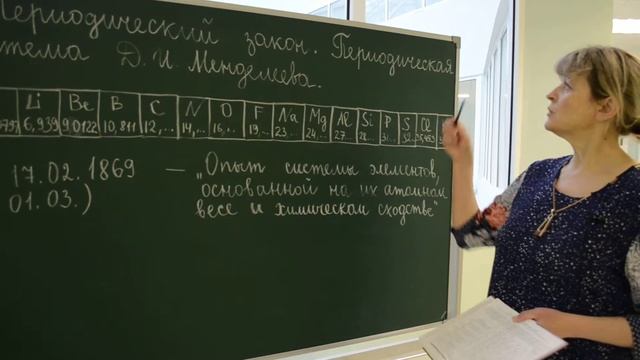 Периодический закон. Периодическая
тема Д. И. Менделеева.
Li Be B C N O F Na Mg Al Si P S Cl
6,939 9,0122 10,811 12,... 14,... 16,... 19,... 23... 24... 27... 28... 31...
17.02.1869 — „Опыт системы элементов,
01.03.) основанной на их атомном
весе и химическом сходстве"